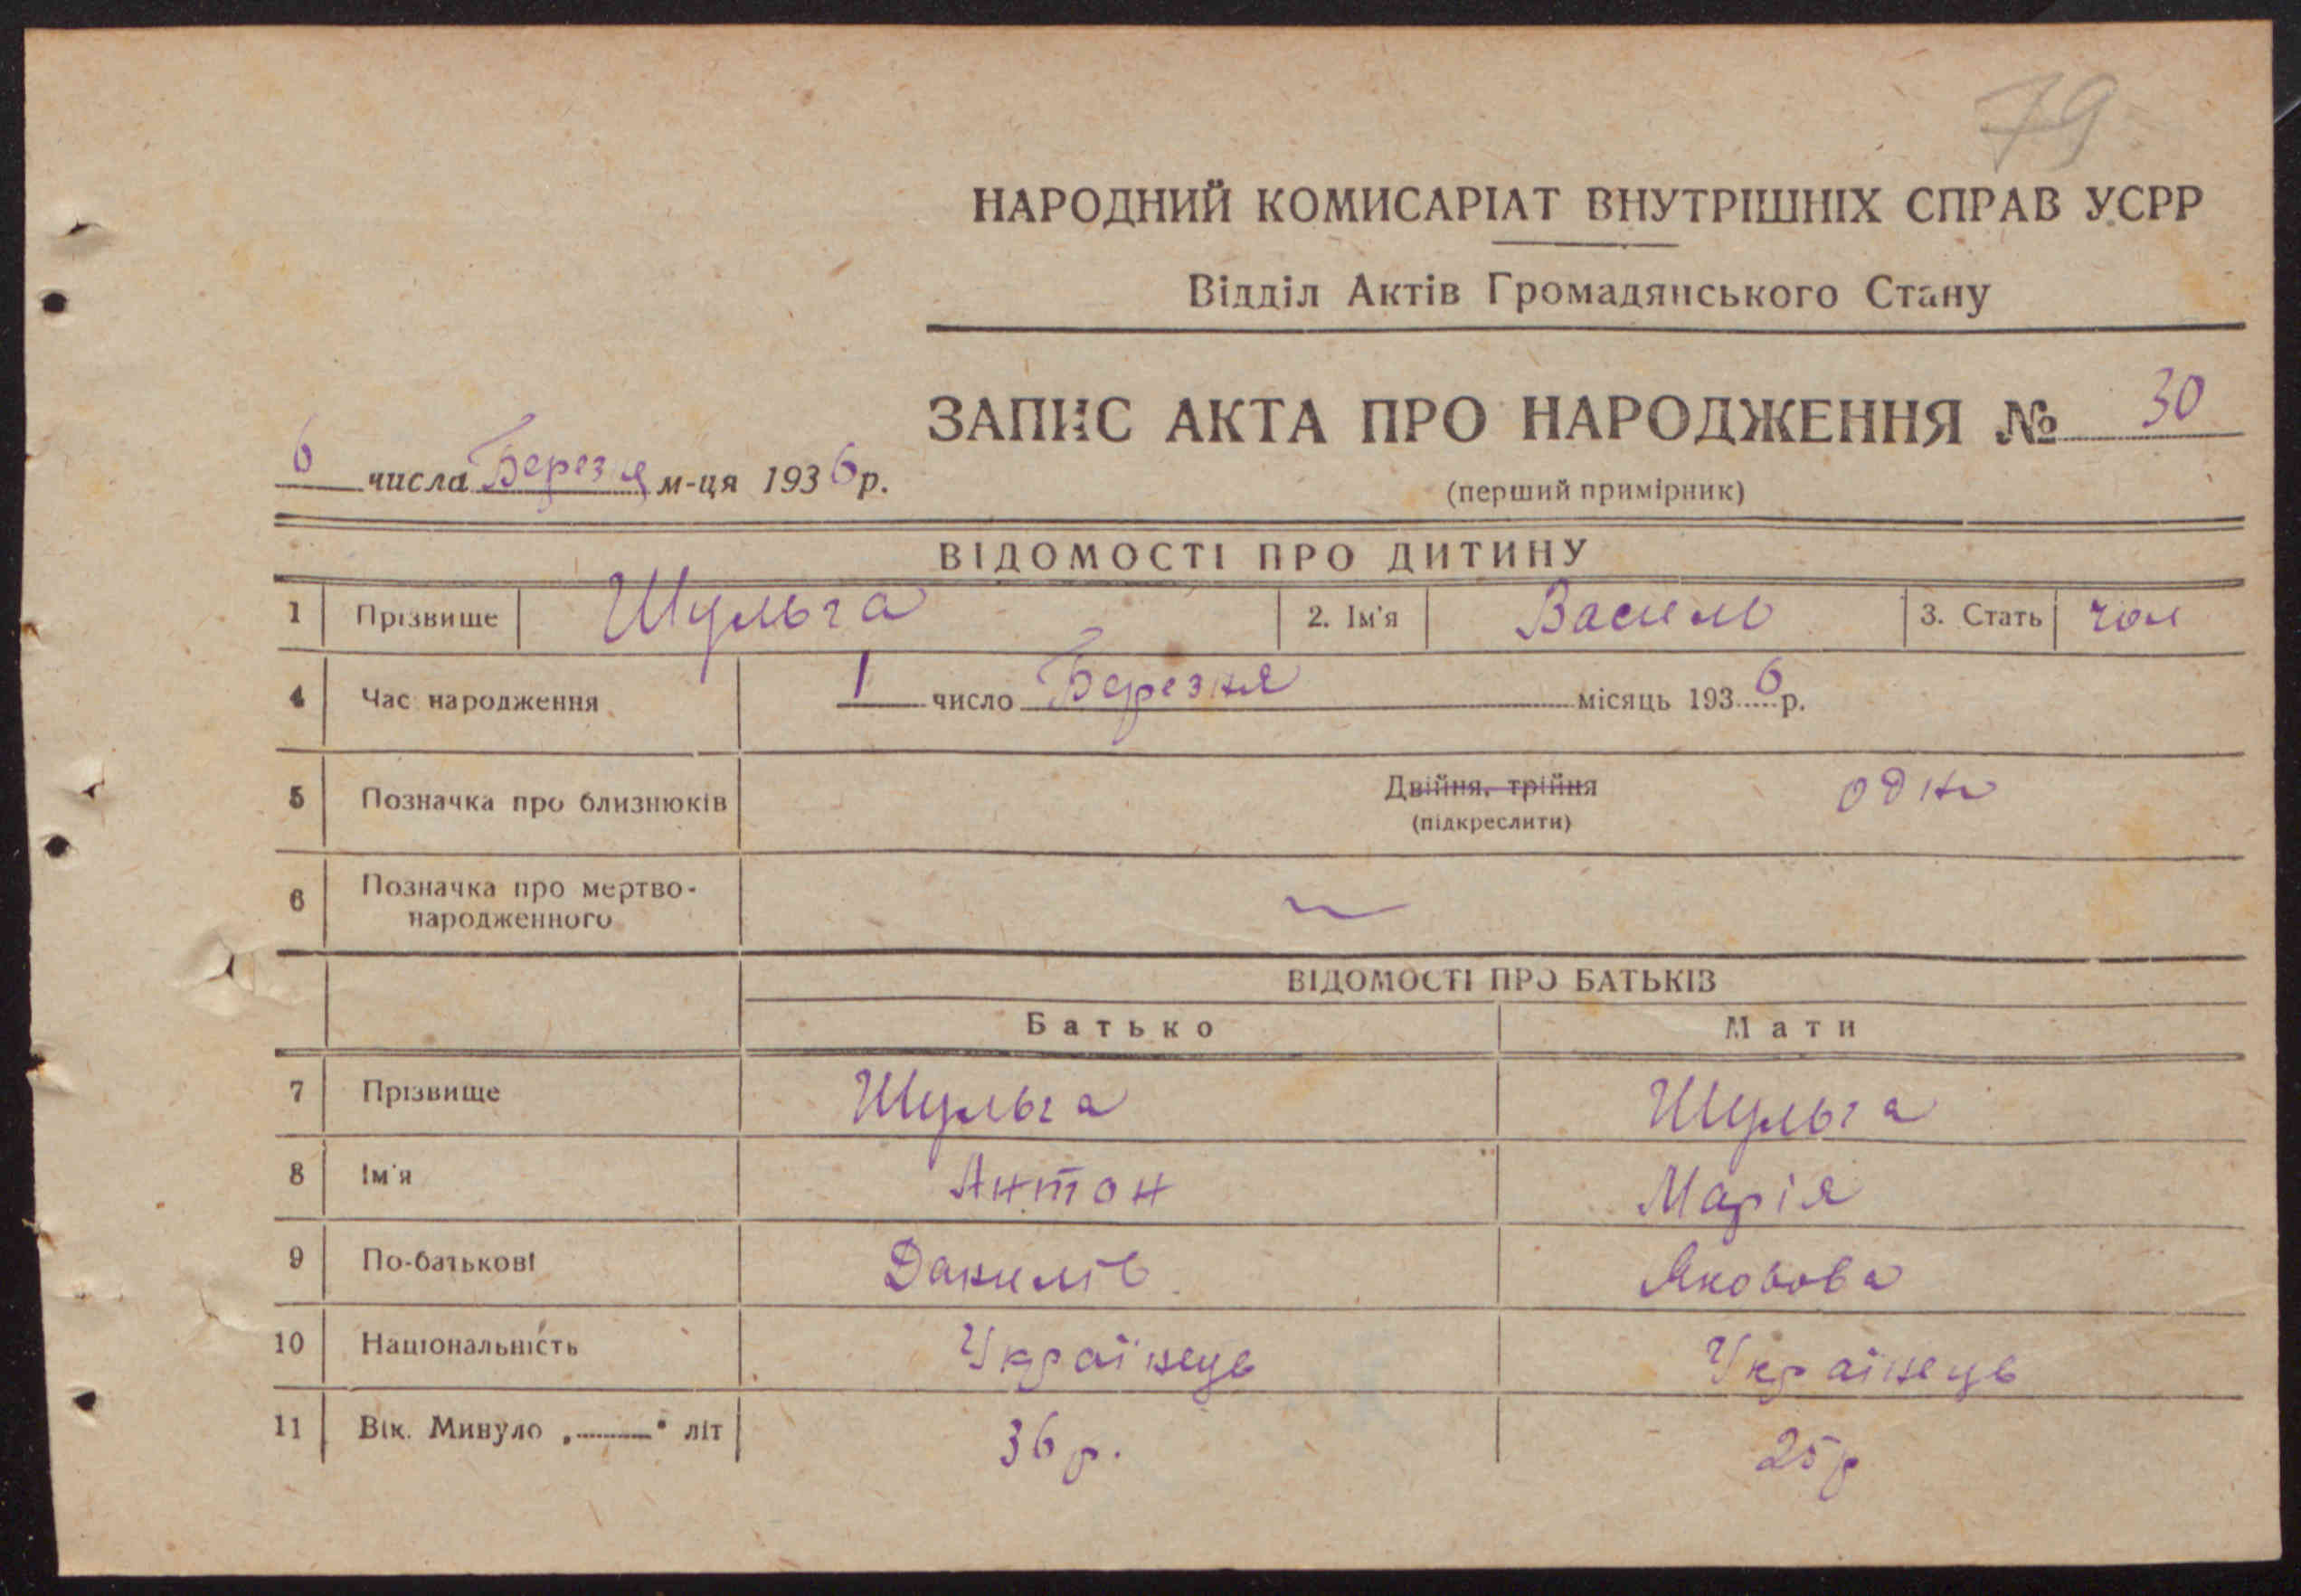 79
НАРОДНИЙ КОМИСАРІАТ ВНУТРІШНІХ СПРАВ УСРР
Відділ Актів Громадянського Стану
ЗАПИС АКТА ПРО НАРОДЖЕННЯ № 30
6 числа Березня м-ця 1936 р.
(перший примірник)
ВІДОМОСТІ ПРО ДИТИНУ
1 Прізвище Шульга 2. Ім'я Василь 3. Стать чол
4 Час народження 1 число Березня місяць 1936 р.
5 Позначка про близнюків Двійня, трійня одно
(підкреслити)
6 Позначка про мертво-
народженного
ВІДОМОСТІ ПРО БАТЬКІВ
Батько Мати
7 Прізвище Шульга Шульга
8 Ім'я Антон Марія
9 По-батькові Данилів Яковова
10 Національність Українець Українець
11 Вік. Минуло „ " літ 36 р. 25 р